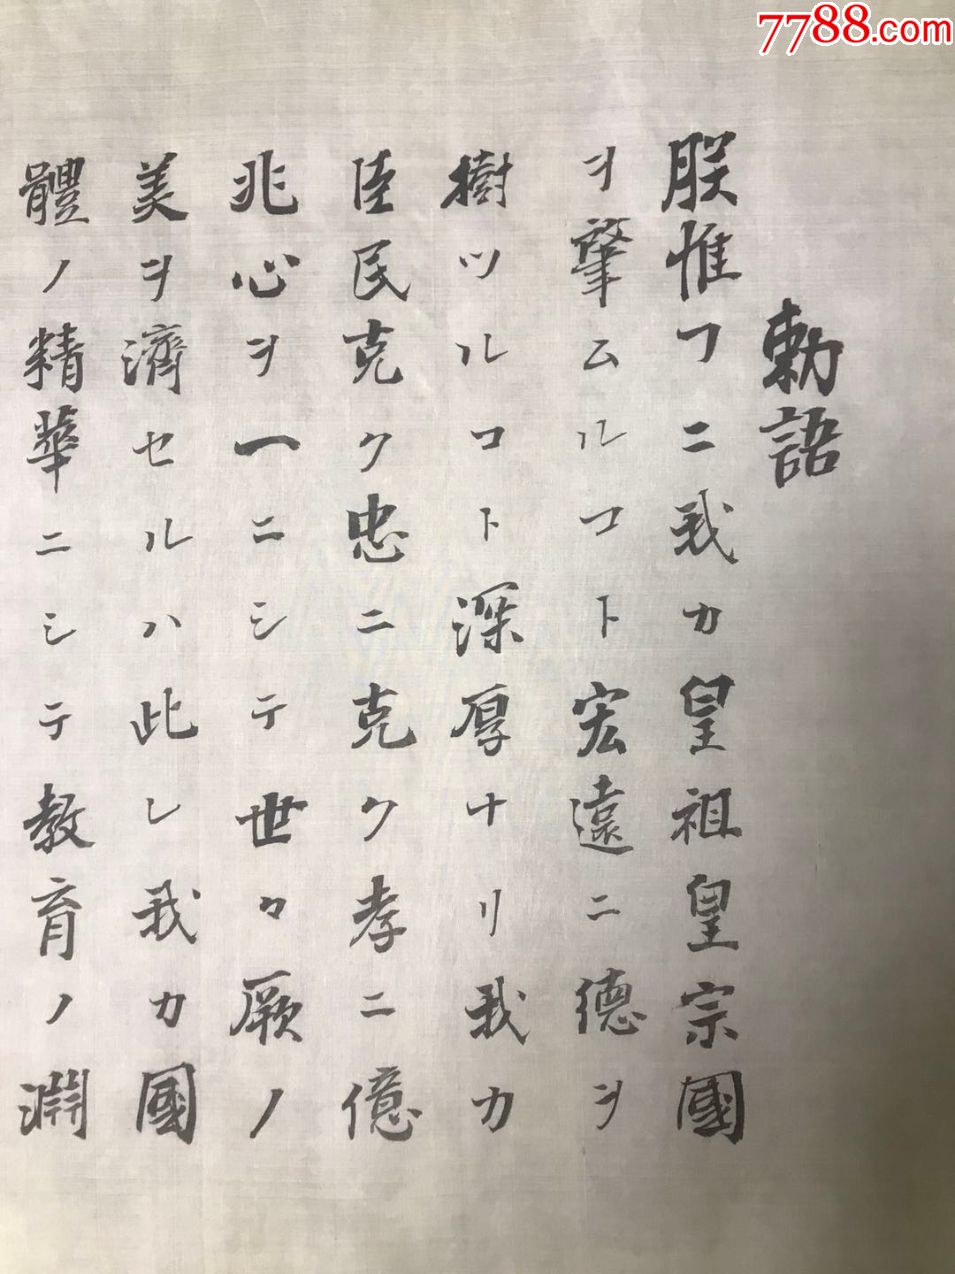 7788.com
勅語
朕惟フニ我カ皇祖皇宗國
ヲ肇ムルコト宏遠ニ德ヲ
樹ツルコト深厚ナリ我カ
臣民克ク忠ニ克ク孝ニ億
兆心ヲ一ニシテ世々厥ノ
美ヲ濟セルハ此レ我カ國
體ノ精華ニシテ教育ノ淵